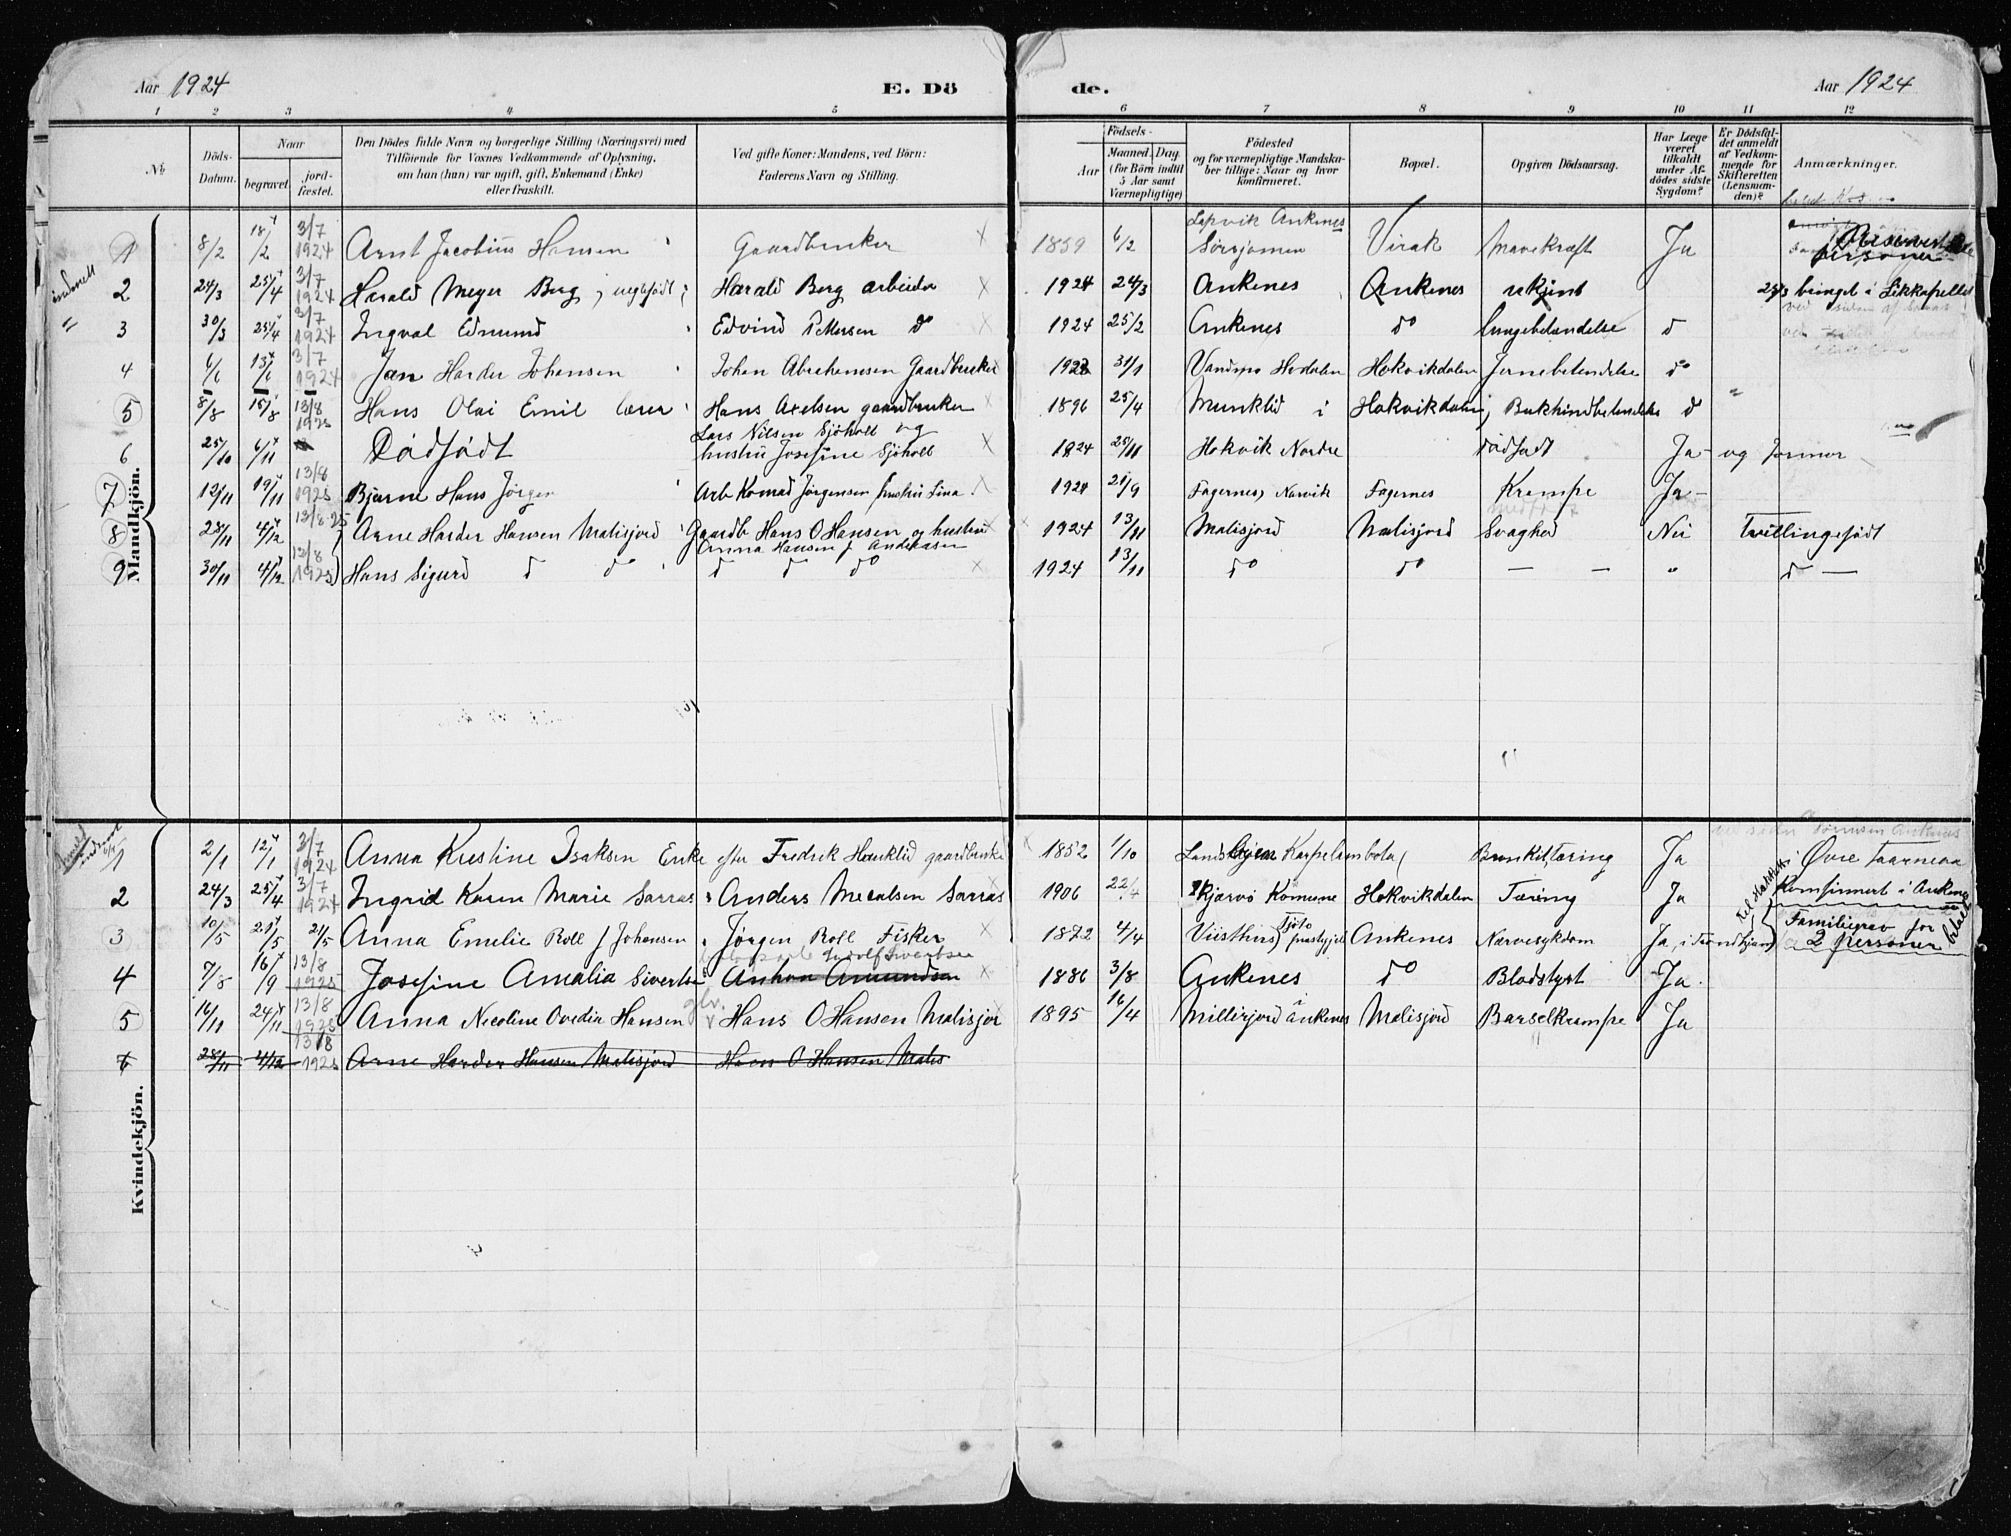 Aar 1924 E. Dö de. Aar 1924
1 2 3 4 5 6 7 8 9 10 11 12
No. Döds-Datum. Naar begravet. jord-fæstet. Den Dödes fulde Navn og borgerlige Stilling (Næringsvei) med Tilföiende for Voxnes Vedkommende af Oplysning, om han (hun) var ugift, gift, Enkemand (Enke) eller fraskilt. Ved gifte Koner: Mandens, ved Börn: Faderens Navn og Stilling. Födsels- Aar Maaned. Dag. (for Börn indtil 5 Aar samt Værnepligtige) Födested og for værnepligtige Mandskaber tillige: Naar og hvor konfirmeret. Bopæl. Opgiven Dödsaarsag. Har Læge været tilkaldt under Afdödes sidste Sygdom? Er Dödsfaldet anmeldt af Vedkommende for Skifteretten (Lensmanden)? Anmærkninger.
Mandkjön.
1 8/2 18/2 3/7 1924 Arnt Jacobius Hansen Gaardbruker 1859 6/2 Lapvik Ankenes Virak Mavekræft Ja Reservert personer
2 24/3 25/4 3/7 1924 Harald Meyer Berg, Harald Berg arbeider 1924 24/3 Ankenes Ankenes ukjent bringet i Likkapellet
3 30/3 25/4 3/7 1924 Ingval Edmund Edvind Pettersen do 1924 25/2 Ankenes do lungebetendelse d
4 6/6 13/6 3/7 1924 Jan Harder Johansen Johan Abrahamsen Gaardbruker 31/1 Hokvikdalen Jernebetendelse do
5 8/8 15/8 13/8 1925 Hans Olai Emil lærer Hans Axelsen gaardbruker 1896 25/4 Munklid i Hokvikdalen Bukhindbetendelse d "
6 25/10 6/11 Dødfødt Lars Nilsen Sjöholt og hustru Josefine Sjöholt 1824 Hokvik Nordre dödfödt Ja og Jormor
7 12/11 19/11 13/8 1925 Bjarne Hans Jörgen Arb Konrad Jörgensen hustru Lina 1924 21/9 Fagernes, Narvik Fagernes Krampe Ja
8 23/11 4/12 13/8-25 Arne Harder Hansen Malisjord Gaardb Hans O Hansen og hustru Anna Hansen f Andreasen 1924 13/11 Malisjord Malisjord Svaghed Nei Tvillingefødt
9 30/11 4/12 13/8 1925 Hans Sigurd d do d d do 1924 13/11 do do — — " d —
Kvindekjön.
1 2/1 12/1 3/7 1924 Anna Kristine Isaksen Enke efter Fredrik Hauklid gaardbruker 1852 1/10 Ja Øvre Taarnelv
2 24/3 25/4 3/7 1924 Ingrid Karen Marie Sarras Anders Mecalsen Sarras 1906 22/4 Skjærvö Komune Hokvikdalen Tæring Ja Konfirmert i Ankenes
3 10/5 21/5 21/5 Anna Emelie Roll f Johansen Jørgen Roll Fisker 1872 4/4 Tjöto Ankenes Narvesykdom Ja, i Trondhjem Familiegrav for 2 personer
4 7/8 16/9 13/8 1925 Josefine Amalia Sivertsen Anton Amundsen 1886 3/8 Ankenes do Blodstyrt Ja
5 16/11 24/11 13/8 1925 Anna Nicoline Ovedia Hansen Hans O Hansen Malisjor 1895 16/4 i Ankenes Malisjord Barselkrampe Ja
6 28/11 4/12 13/8 1925 Arne Harder Hansen Malisjord Hans O Hansen Malis